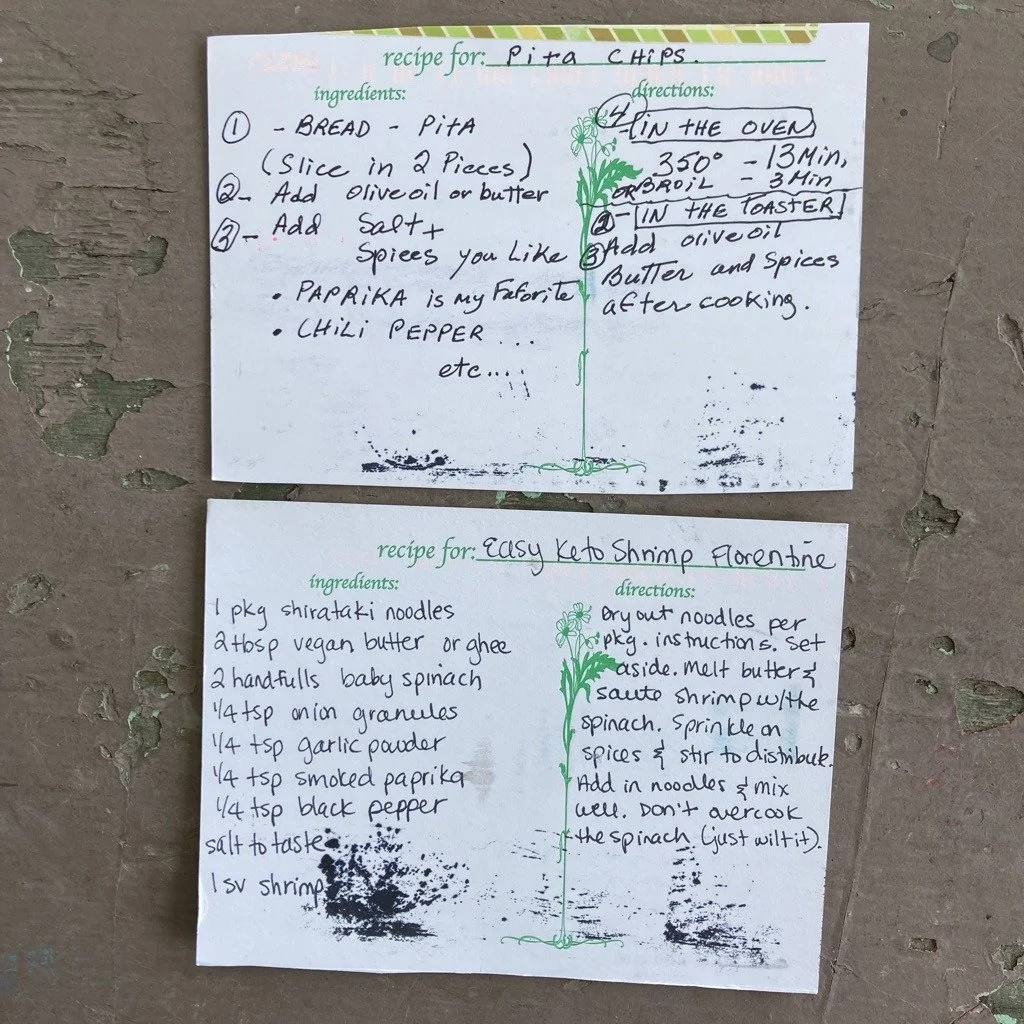 recipe for: Pita CHIPS.
ingredients:
① - BREAD - PitA
(Slice in 2 Pieces)
②- Add olive oil or butter
③- Add Salt +
Spices you Like
• PAPRiKA is my Faforite
• CHiLi PEPPER ...
etc....
directions:
④
- IN THE OVEN
350° - 13 Min,
OR BROiL - 3 Min
② - IN THE TOASTER
③ Add olive oil
Butter and Spices
after cooking.
recipe for: Easy Keto Shrimp Florentine
ingredients:
1 pkg shirataki noodles
2 tbsp vegan butter or ghee
2 handfulls baby spinach
1/4 tsp onion granules
1/4 tsp garlic powder
1/4 tsp smoked paprika
1/4 tsp black pepper
salt to taste
1 sv shrimp
directions:
Dry out noodles per
pkg. instructions. Set
aside. Melt butter &
saute shrimp w/the
spinach. Sprinkle on
spices & stir to distribute.
Add in noodles & mix
well. Don't overcook
the spinach (just wilt it).